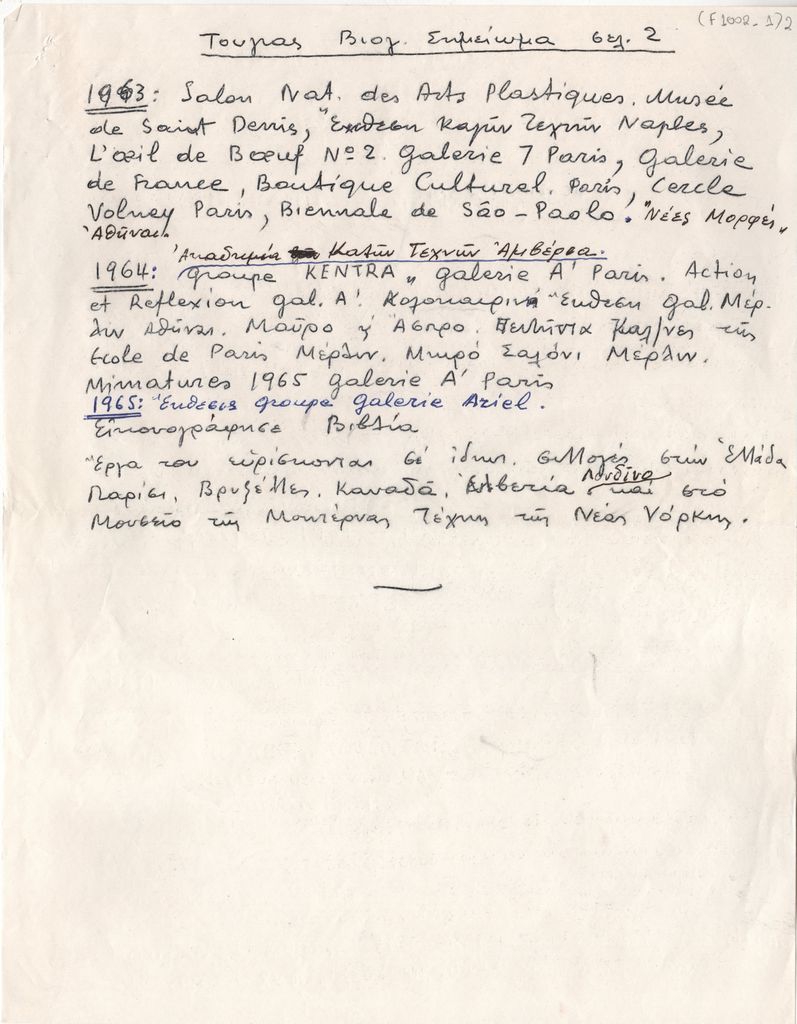 (F1002-1)2
Τουγιας Βιογ. Σημείωμα σελ. 2
1963: Salon Nat. des Arts Plastiques. Musée
de Saint Denis, Ἔκθεση Καλῶν Τεχνῶν Naples,
L'œil de Bœuf Nº 2. Galerie 7 Paris, Galerie
de France, Boutique Culturel. Paris, Cercle
Volney Paris, Biennale de São-Paolo. "Νέες Μορφές"
Ἀθῆναι.
Ἀκαδημία Καλῶν Τεχνῶν Ἀμβέρσα.
1964: Groupe KENTRA" galerie A' Paris. Action
et Reflexion gal. A'. Καλοκαιρινὴ Ἔκθεση Gal. Μέρ-
λιν Ἀθῆναι. Μαῦρο ἢ Ἄσπρο. Πενῆντα Καλ/νες τῆς
Ecole de Paris Μέρλιν. Μικρό Σαλόνι Μέρλιν.
Miniatures 1965 galerie A' Paris
1965: Ἔκθεσις groupe Galerie Ariel.
Εἰκονογράφησε Βιβλία
Ἔργα του εὑρίσκονται σέ ἰδιωτ. συλλογές στήν Ἑλλάδα
Παρίσι, Βρυξέλλες, Καναδᾶ, Ἑλβετία Λονδίνο καί στό
Μουσεῖο τῆς Μοντέρνας Τέχνης τῆς Νέας Υόρκης.